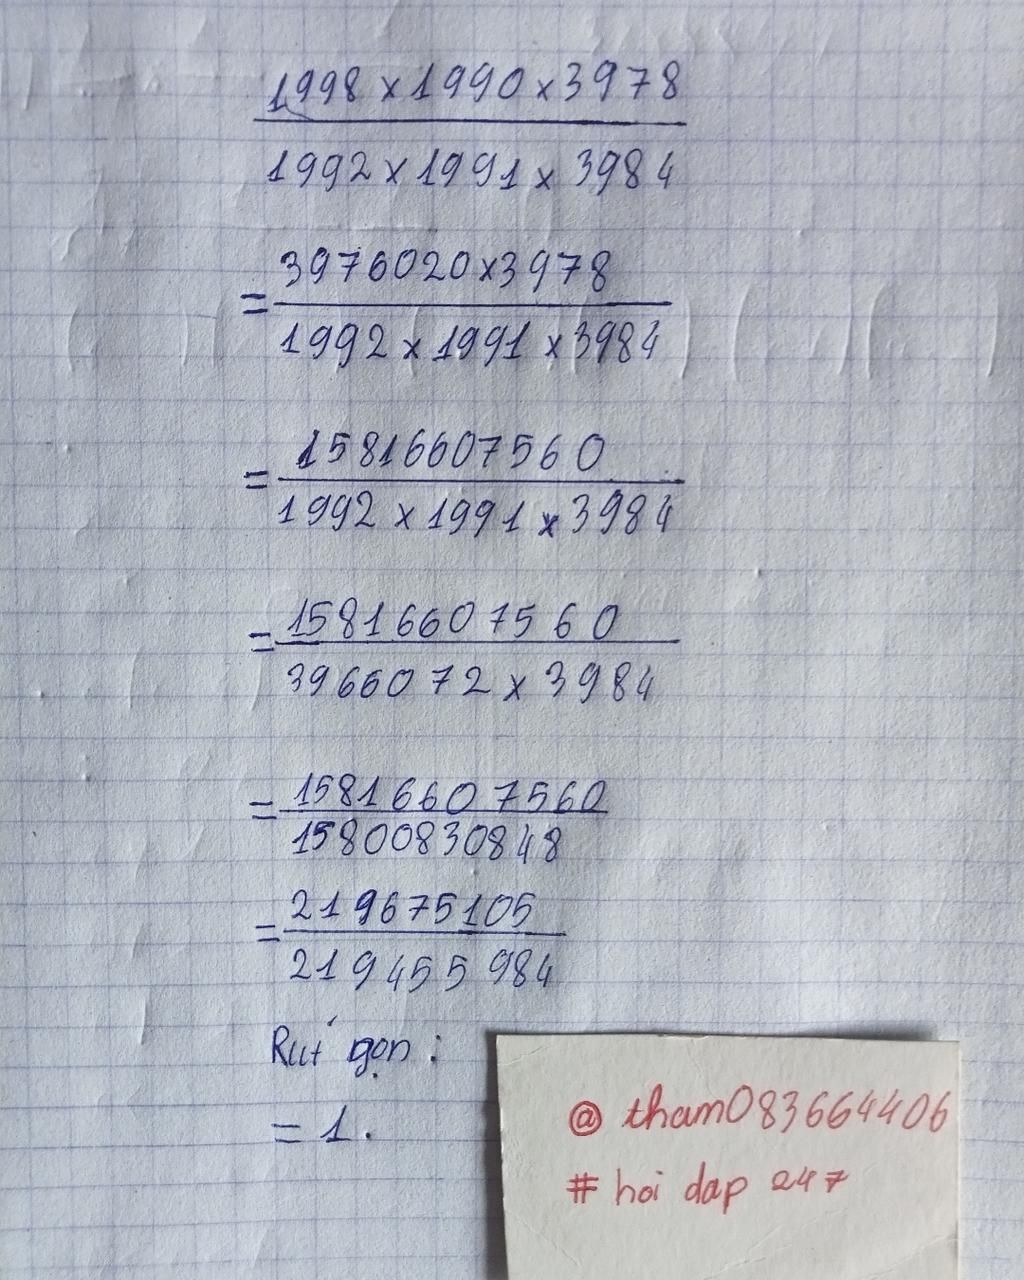 1998 x 1990 x 3978
1992 x 1991 x 3984
= 3976020 x 3978
1992 x 1991 x 3984
= 15816607560
1992 x 1991 x 3984
= 15816607560
3966072 x 3984
= 15816607560
15800830848
= 219675105
219455984
Rút gọn :
= 1.
@ tham083664406
# hoi dap 247